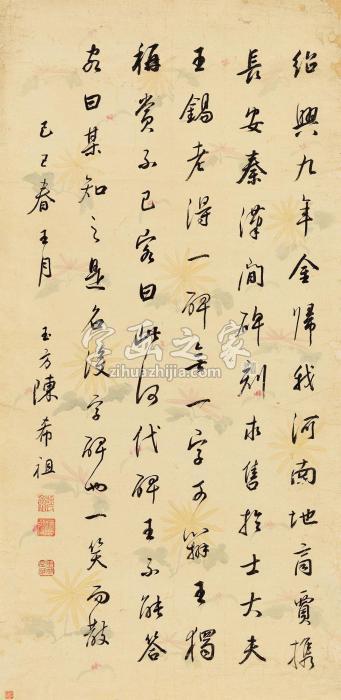 紹興九年金歸我河南地商賈攜
長安秦漢間碑刻求售於士大夫
王錫老得一碑無一字可辨王獨
稱賞不已客曰此何代碑王不能答
客曰某知之是名沒字碑也一笑而散
己巳春王月 玉方陳希祖
字画之家
zihuazhijia.com